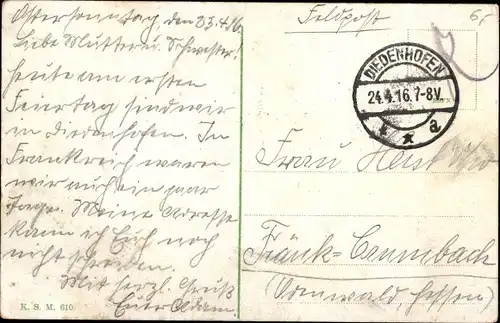 Ostersonntag, den 23.4.16.
Liebe Mutter u. Schwester!
Heute am ersten
Feiertag sind wir
in Diedenhofen. In
Frankreich waren
wir auch ein paar
Tage. Meine Adresse
kann ich Euch noch
nicht schreiben.
Mit herzl. Gruß
Euer Adam.
K. S. M. 610
Feldpost
DIEDENHOFEN
24.4.16.7-8V.
* a
Frau Heist
Fränk-Crumbach
(Odenwald, Hessen)